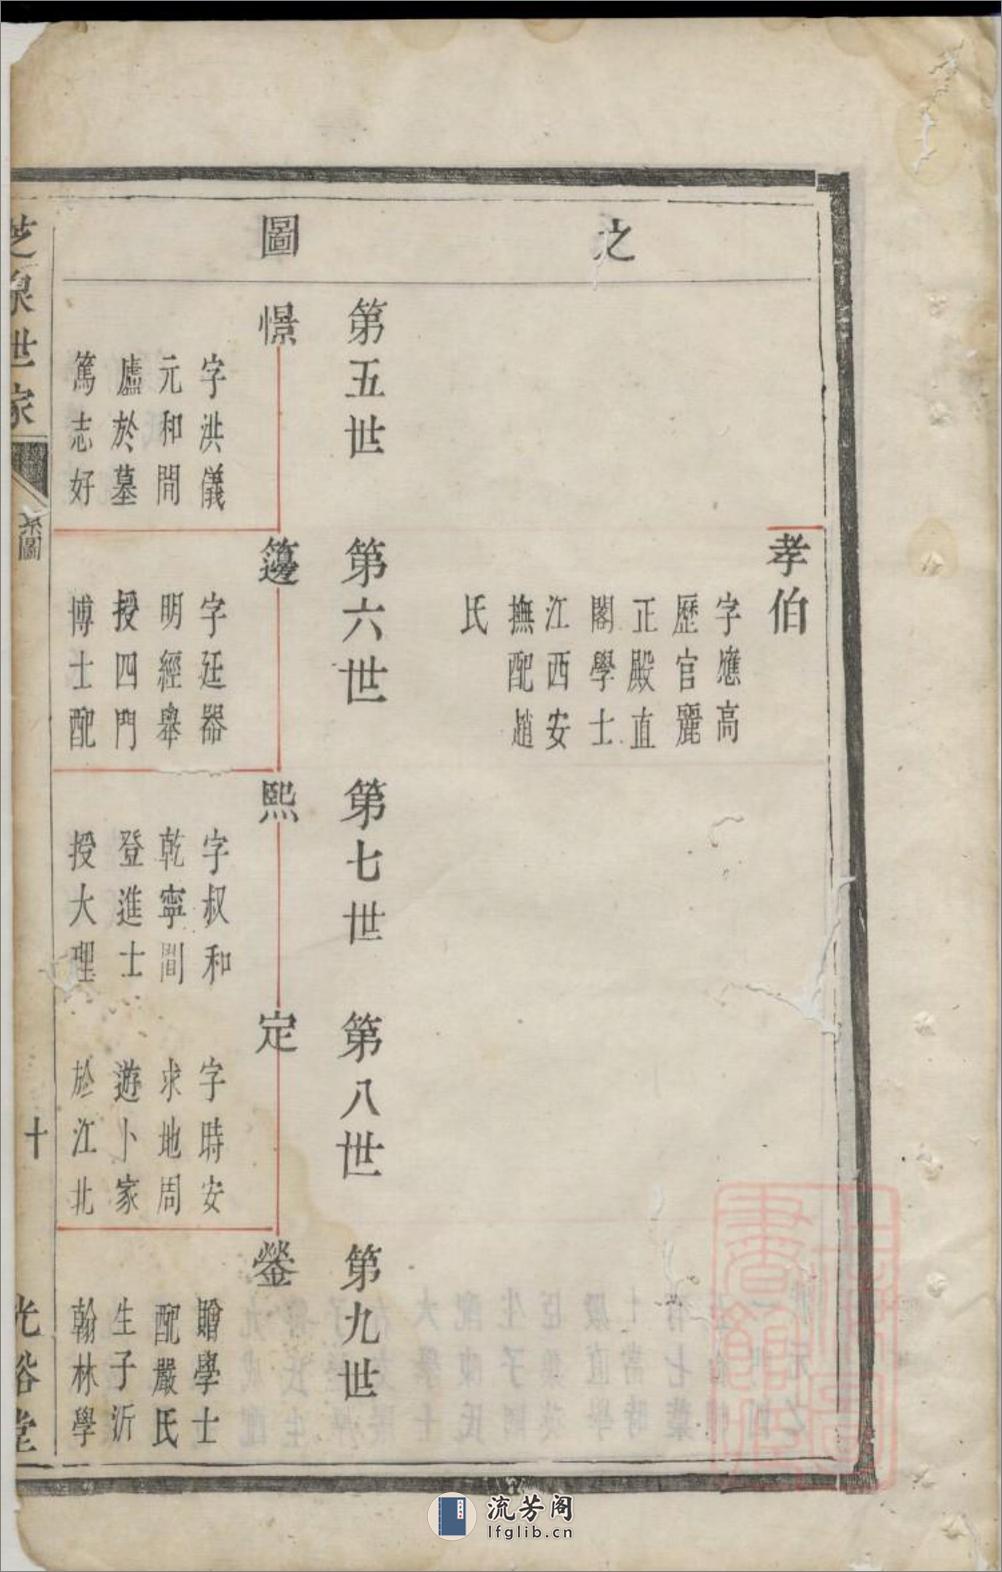 之
圖
孝伯
字應高
歷官麗
正殿直
閣學士
江西安
撫配趙
氏
第五世
第六世
第七世
第八世
第九世
憬
字洪儀
元和間
廬於墓
篤志好
籩
字廷器
明經舉
授四門
博士配
熙
字叔和
乾寧間
登進士
授大理
定
字時安
求地周
遊卜家
於江北
鎣
贈學士
配嚴氏
生子沂
翰林學
芝泉世家
系圖
十
光裕堂
流芳阁
lfglib.cn